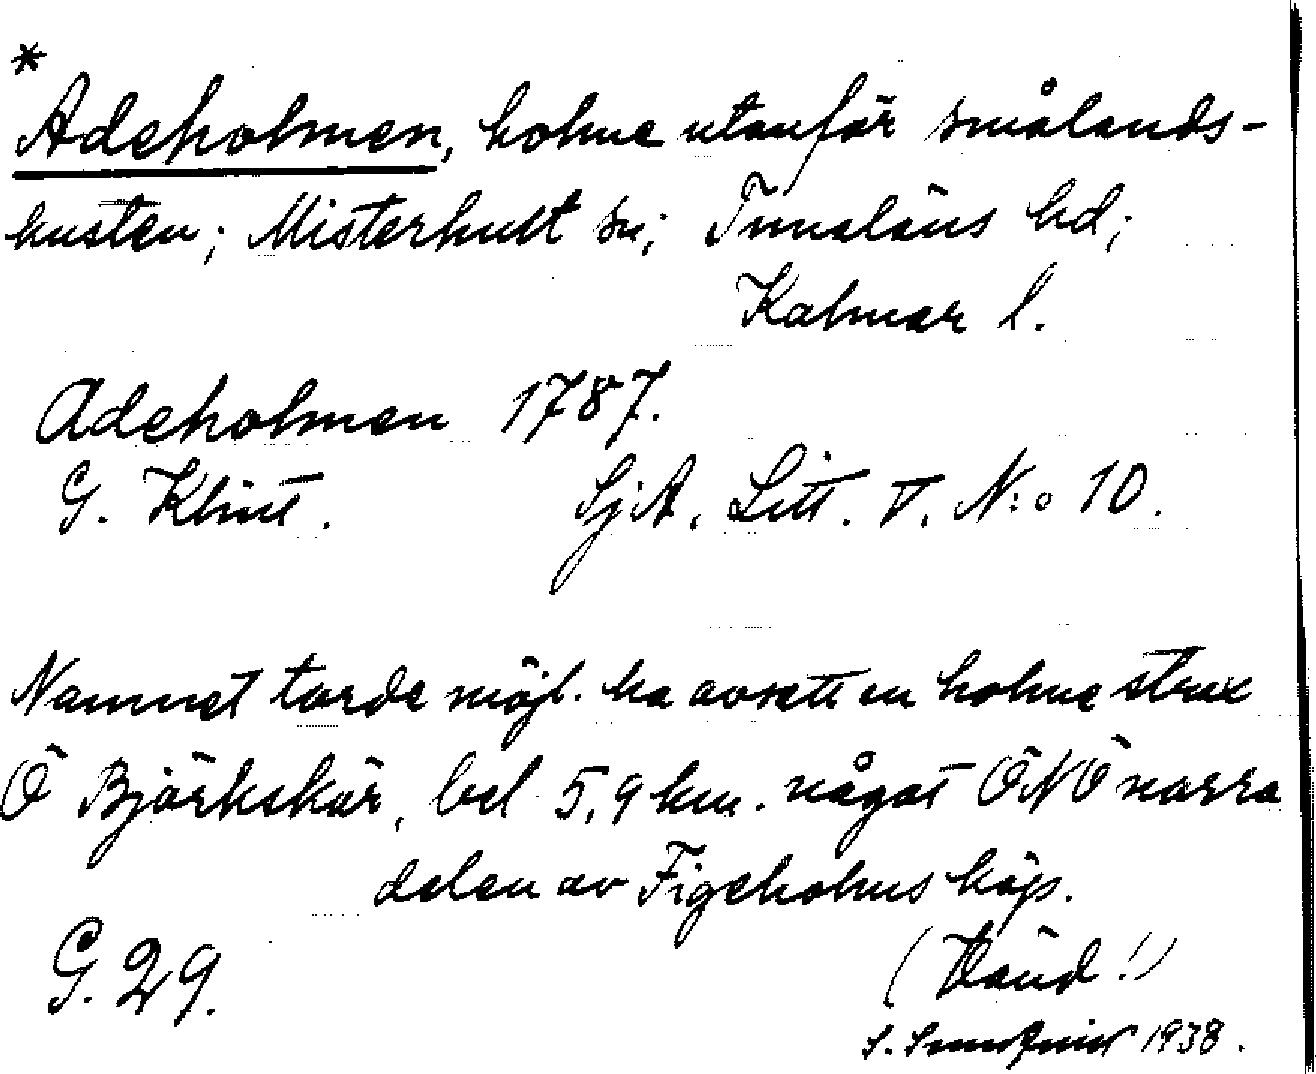 *
Adeholmen, holme utanför smålands-
kusten; Misterhult sn; Tunaläns hd;
Kalmar l.
Adeholmen 1787.
G. Klint. SjA. Litt. V. N:o 10.
Namnet torde möjl. ha avsett en holme strax
Ö Björkskär, bel 5,9 km. något ÖNÖ norra
delen av Figeholms köp.
G. 29. (Vänd!)
S. 1938.